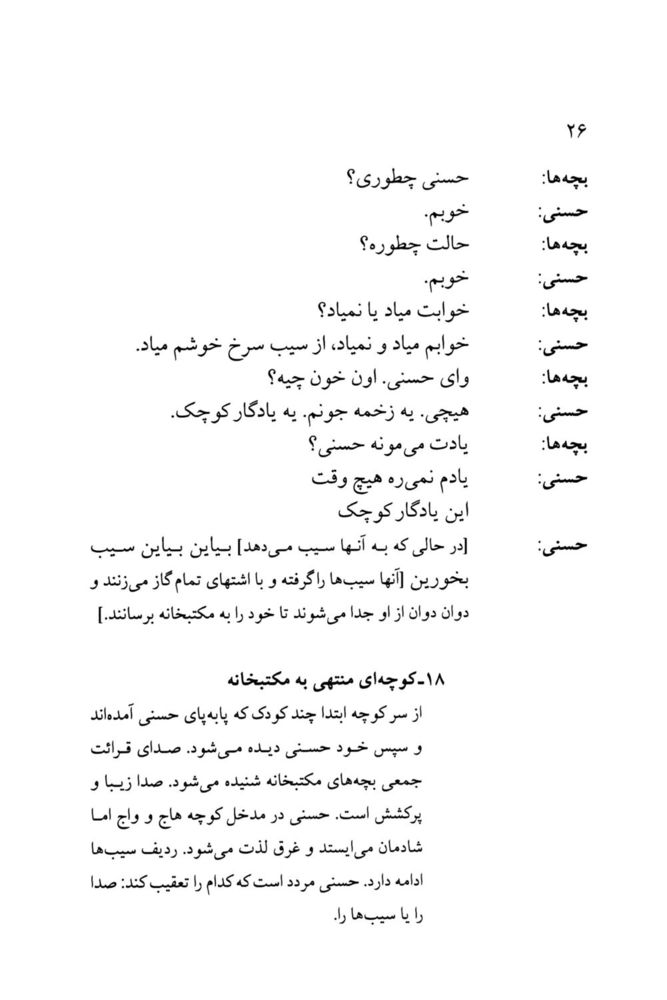 ۲۶
بچه‌ها: حسنی چطوری؟
حسنی: خوبم.
بچه‌ها: حالت چطوره؟
حسنی: خوبم.
بچه‌ها: خوابت میاد یا نمیاد؟
حسنی: خوابم میاد و نمیاد، از سیب سرخ خوشم میاد.
بچه‌ها: وای حسنی. اون خون چیه؟
حسنی: هیچی. یه زخمه جونم. یه یادگار کوچک.
بچه‌ها: یادت می‌مونه حسنی؟
حسنی: یادم نمی‌ره هیچ وقت
این یادگار کوچک
حسنی: [در حالی که به آنها سیب می‌دهد] بیاین بیاین سیب
بخورین [آنها سیب‌ها را گرفته و با اشتهای تمام گاز می‌زنند و
دوان دوان از او جدا می‌شوند تا خود را به مکتبخانه برسانند.]
۱۸ـ کوچه‌ای منتهی به مکتبخانه
از سر کوچه ابتدا چند کودک که پابه‌پای حسنی آمده‌اند
و سپس خود حسنی دیده می‌شود. صدای قرائت
جمعی بچه‌های مکتبخانه شنیده می‌شود. صدا زیبا و
پرکشش است. حسنی در مدخل کوچه هاج و واج اما
شادمان می‌ایستد و غرق لذت می‌شود. ردیف سیب‌ها
ادامه دارد. حسنی مردد است که کدام را تعقیب کند: صدا
را یا سیب‌ها را.